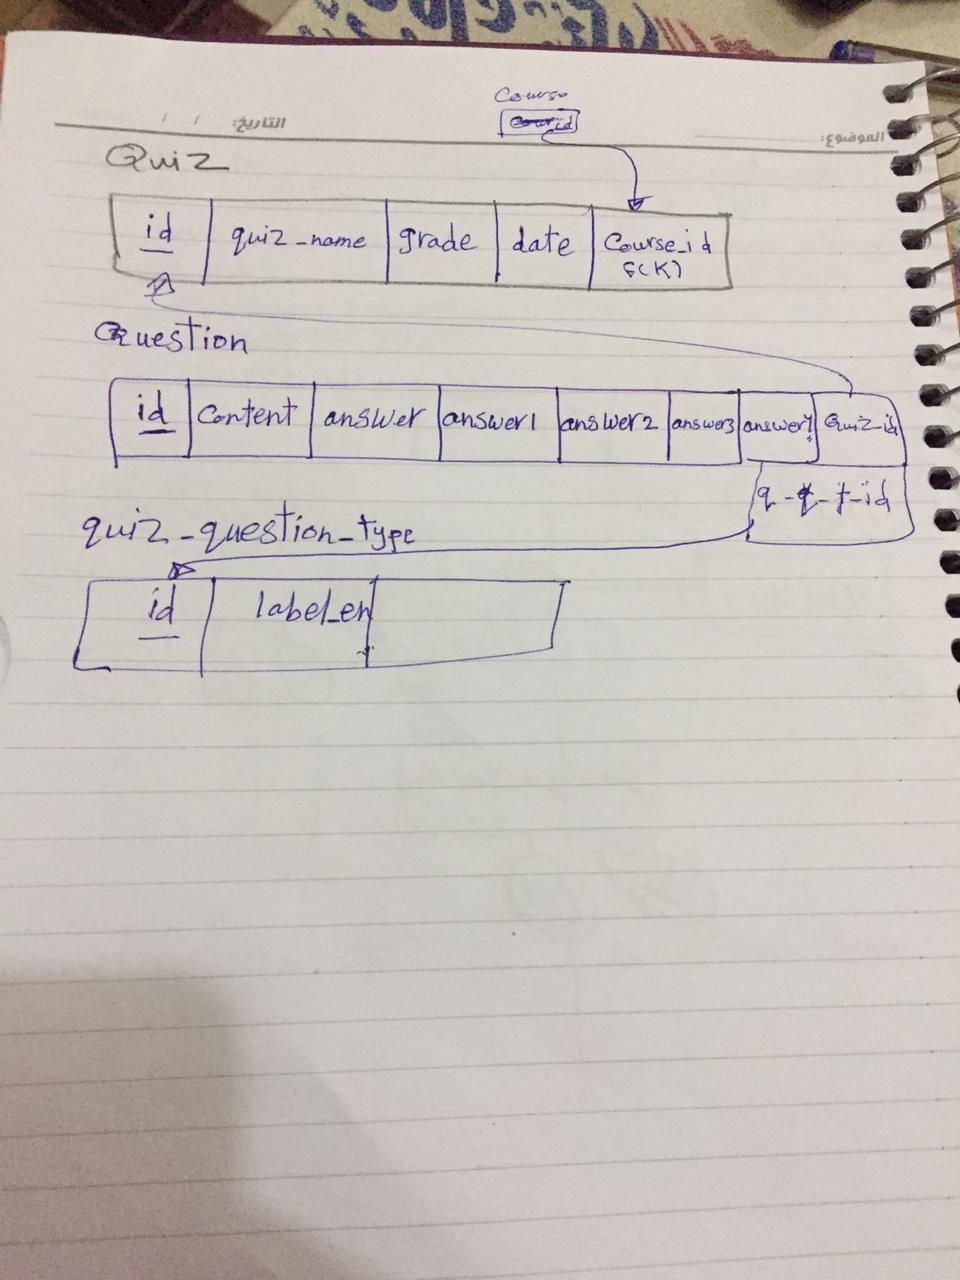 Course
id
التاريخ: / /
الموضوع:
Quiz
id quiz_name grade date Course_id
F(K)
Question
id Content answer answer1 answer2 answer3 answer4 Quiz_id
q-q-t-id
quiz_question_type
id label_en